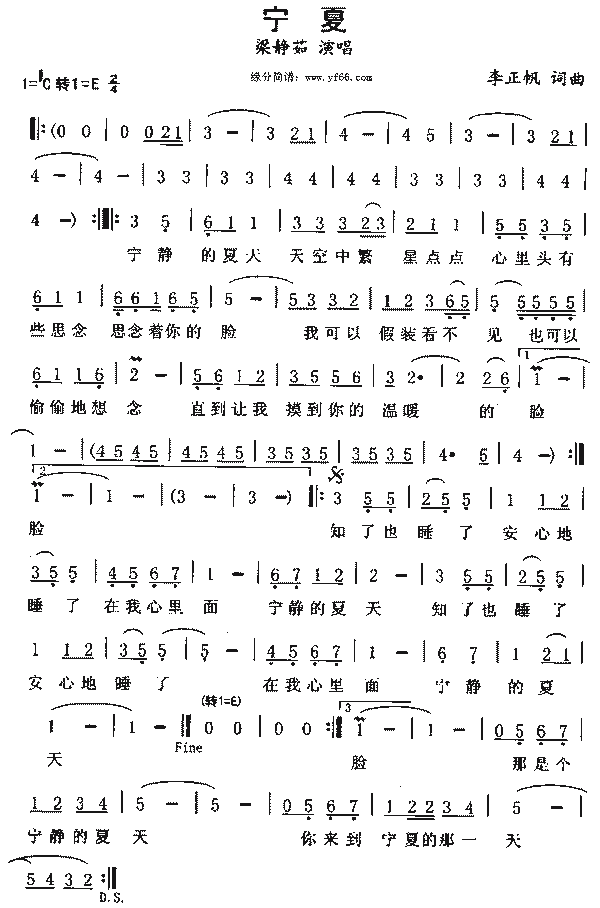 宁 夏
梁静茹 演唱
1=♭C 转1=E 2/4
缘分简谱：www.yf66.com
李正帆 词曲
‖:(0 0 | 0 021 | 3 - | 3 21 | 4 - | 4 5 | 3 - | 3 21 |
4 - | 4 - | 3 3 | 3 3 | 4 4 | 4 4 | 3 3 | 3 3 | 4 4 |
4 -) :‖: 3 5 | 6 1 1 | 3 3 3 23 | 2 1 1 | 5 5 3 5 |
宁 静 的夏天 天空中繁 星点点 心里头有
6 1 1 | 6 6 1 6 5 | 5 - | 5 3 3 2 | 1 2 3 65 | 5 5 5 5 5 |
些思念 思念着你的 脸 我可以 假装看不 见 也可以
6 1 1 6 | 2 - | 5 6 1 2 | 3 5 5 5 | 3 2· | 2 2 2 6 | 1. 1 - |
偷偷地想 念 直到让我 摸到你的 温暖 的 脸
1 - | (4 5 4 5 | 4 5 4 5 | 3 5 3 5 | 3 5 3 5 | 4· 5 | 4 -) :‖
2. 1 - | 1 - | (3 - | 3 -) ‖: 3 5 5 | 2 5 5 | 1 1 2 |
脸 知了也 睡了 安心地
3 5 5 | 4 5 6 7 | 1 - | 6 7 1 2 | 2 - | 3 5 5 | 2 5 5 |
睡了 在我心里 面 宁静的夏 天 知了也 睡了
1 1 2 | 3 5 5 | 5 - | 4 5 6 7 | 1 - | 6 7 | 1 2 1 |
安心地 睡了 在我心里 面 宁 静 的 夏
(转1=E)
1 - | 1 - ‖ 0 0 | 0 0 :‖ 3. 1 - | 1 - | 0 5 6 7 |
Fine
天 脸 那是个
1 2 3 4 | 5 - | 5 - | 0 5 6 7 | 1 2 2 3 4 | 5 - |
宁静的夏 天 你来到 宁夏的那一 天
5 4 3 2 :‖
D.S.